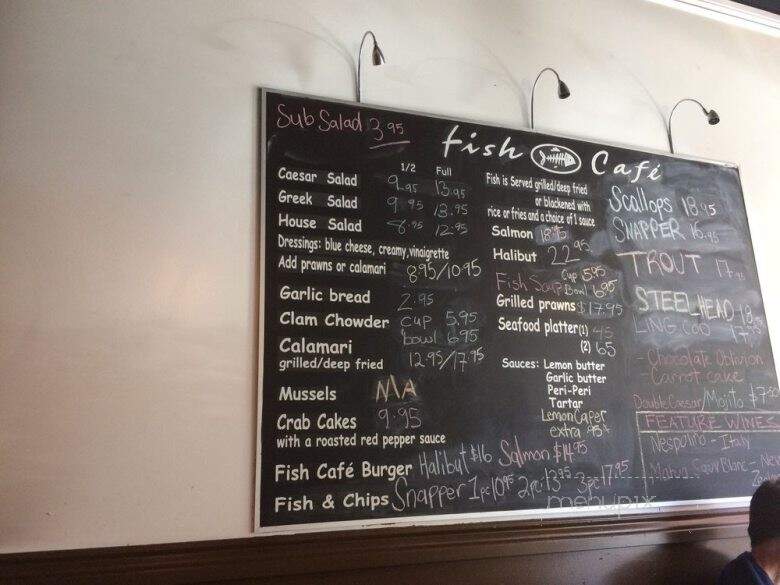 Sub Salad 3.95
fish Café
1/2 Full
Caesar Salad 9.95 13.95
Greek Salad 9.95 13.95
House Salad 8.95 12.95
Dressings: blue cheese, creamy,vinaigrette
Add prawns or calamari 8.95/10.95
Garlic bread 2.95
Clam Chowder cup 5.95
bowl 6.95
Calamari
grilled/deep fried 12.95/17.95
Mussels
Crab Cakes 9.95
with a roasted red pepper sauce
Fish Café Burger Halibut $16 Salmon $14.95
Fish & Chips Snapper 1pc 10.95 2pc 13.95 3pc 17.95
Fish is Served grilled/deep fried
or blackened with
rice or fries and a choice of 1 sauce
Salmon 18.95
Halibut 22.95
Fish Soup Cup 5.95
Bowl 6.95
Grilled prawns $17.95
Seafood platter(1) 45
(2) 65
Sauces: Lemon butter
Garlic butter
Peri-Peri
Tartar
Lemon Caper
extra .95¢
Scallops 18.95
SNAPPER 16.95
TROUT 17.95
STEELHEAD
LING COD
- Chocolate Oblivion
- Carrot cake
Double Caesar/Mojito
FEATURE WINES
Nespolino - Italy
Sauv Blanc -
menupix